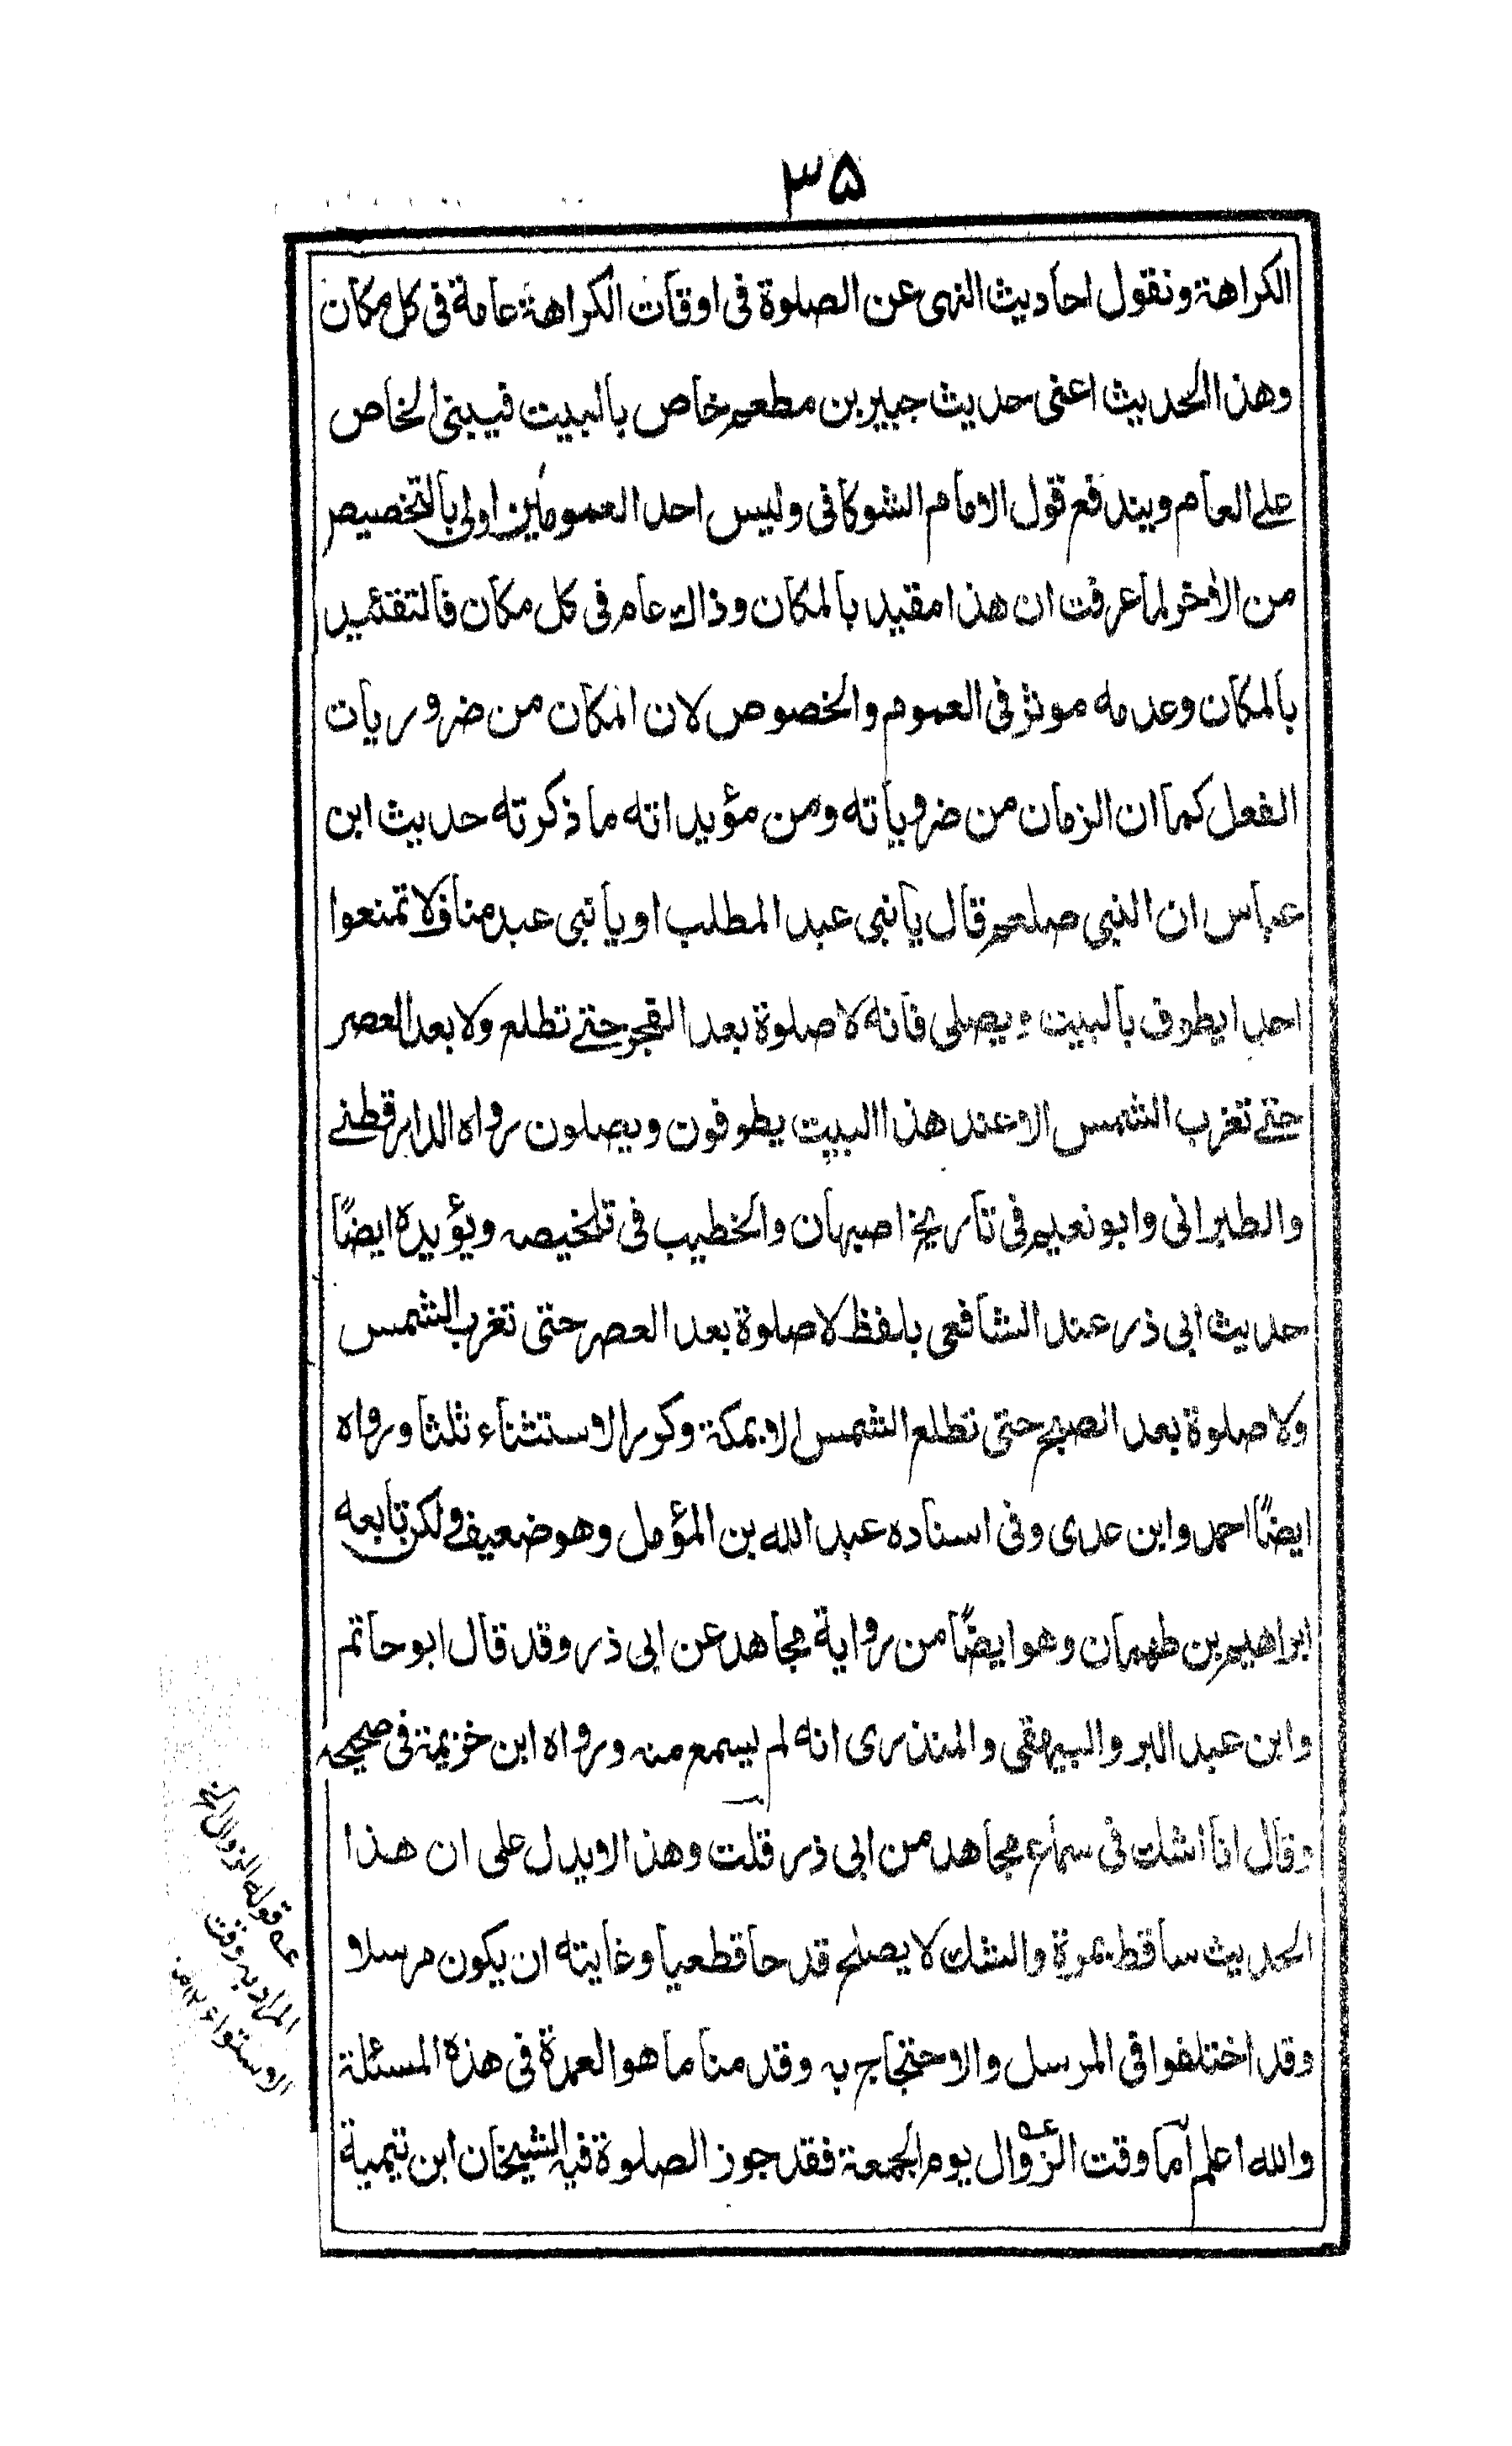 ۳۵
الكراهة ونقول احاديث النهى عن الصلوة فى اوقات الكراهة عامة فى كل مكان
وهذا الحديث اعنى حديث جبير بن مطعم خاص بالبيت فيبنى الخاص
على العام ويندفع قول الامام الشوكانى وليس احد العمومين اولى بالتخصيص
من الاخر لما عرفت ان هذا مقيد بالمكان وذاك عام فى كل مكان فالتقئيد
بالمكان وعدمه موثر فى العموم والخصوص لان المكان من ضروريات
الفعل كما ان الزمان من ضروياته ومن مؤيداته ما ذكرته حديث ابن
عباس ان النبى صلعم قال يا بنى عبد المطلب او يا بنى عبد مناف لا تمنعوا
احدا يطوف بالبيت ويصلى فانه لا صلوة بعد الفجر حتى تطلع ولا بعد العصر
حتى تغرب الشمس الا عند هذا البيت يطوفون ويصلون رواه الدارقطنے
والطبرانى وابو نعيم فى تاريخ اصبهان والخطيب فى تلخيصه ويؤيده ايضًا
حديث ابى ذر عند الشافعى بلفظ لا صلوة بعد العصر حتى تغرب الشمس
ولا صلوة بعد الصبح حتى تطلع الشمس الا بمكة وكرر الاستثناء ثلثا ورواه
ايضًا احمد وابن عدى وفى اسناده عبد الله بن المؤمل وهو ضعيف ولكن تابعه
ابراهيم بن طهمان وهو ايضًا من رواية مجاهد عن ابى ذر وقد قال ابو حاتم
وابن عبد البر والبيهقى والمنذرى انه لم يسمع منه ورواه ابن خزيمة فى صحيحه
وقال انا اشك فى سماع مجاهد من ابى ذر قلت وهذا لا يدل على ان هذا
الحديث ساقط بمرة والشك لا يصلح قدحا قطعيا وغايته ان يكون مرسلا و
وقد اختلفوا فى المرسل والاحتجاج به وقد منا ما هو العمدة فى هذه المسئلة
والله اعلم اما وقت الزوال يوم الجمعة فقد جوز الصلوة فيه الشيخان ابن تيمية
عه قوله الزوال
المراد به وقت
الاستواء ۱۲